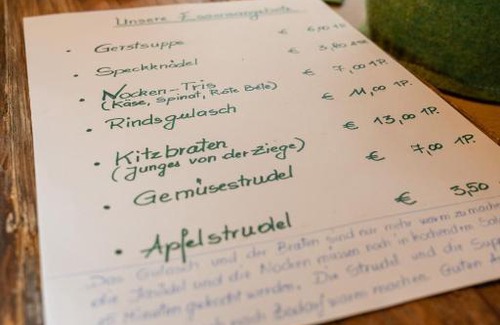 Unsere Essensangebote
• Gerstsuppe €
• Speckknödel € 3,80
• Nocken-Tris € 7,00 1P.
(Käse, Spinat, Rote Bete)
• Rindsgulasch € 11,00 1P.
• Kitzbraten € 13,00 1P.
(Junges von der Ziege)
• Gemüsestrudel € 7,00 1P.
• Apfelstrudel € 3,50
Das Gulasch und der Braten sind nur mehr warm zu machen
die Knödel und die Nocken müssen noch in kochendem
15 Minuten gekocht werden. Die Strudel und die
nach Bedarf warm machen. Guten